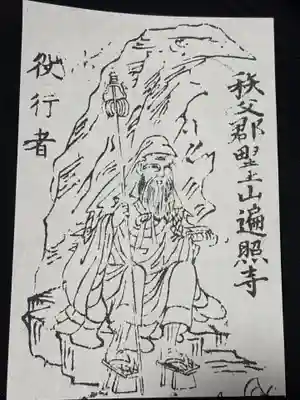 秩父郡野土山遍照寺
役行者